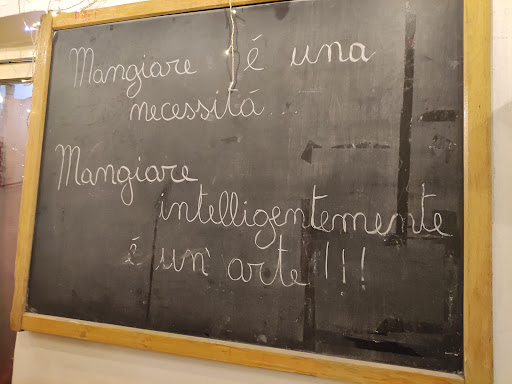 Mangiare é una
necessitá...
Mangiare
intelligentemente
é un' arte!!!